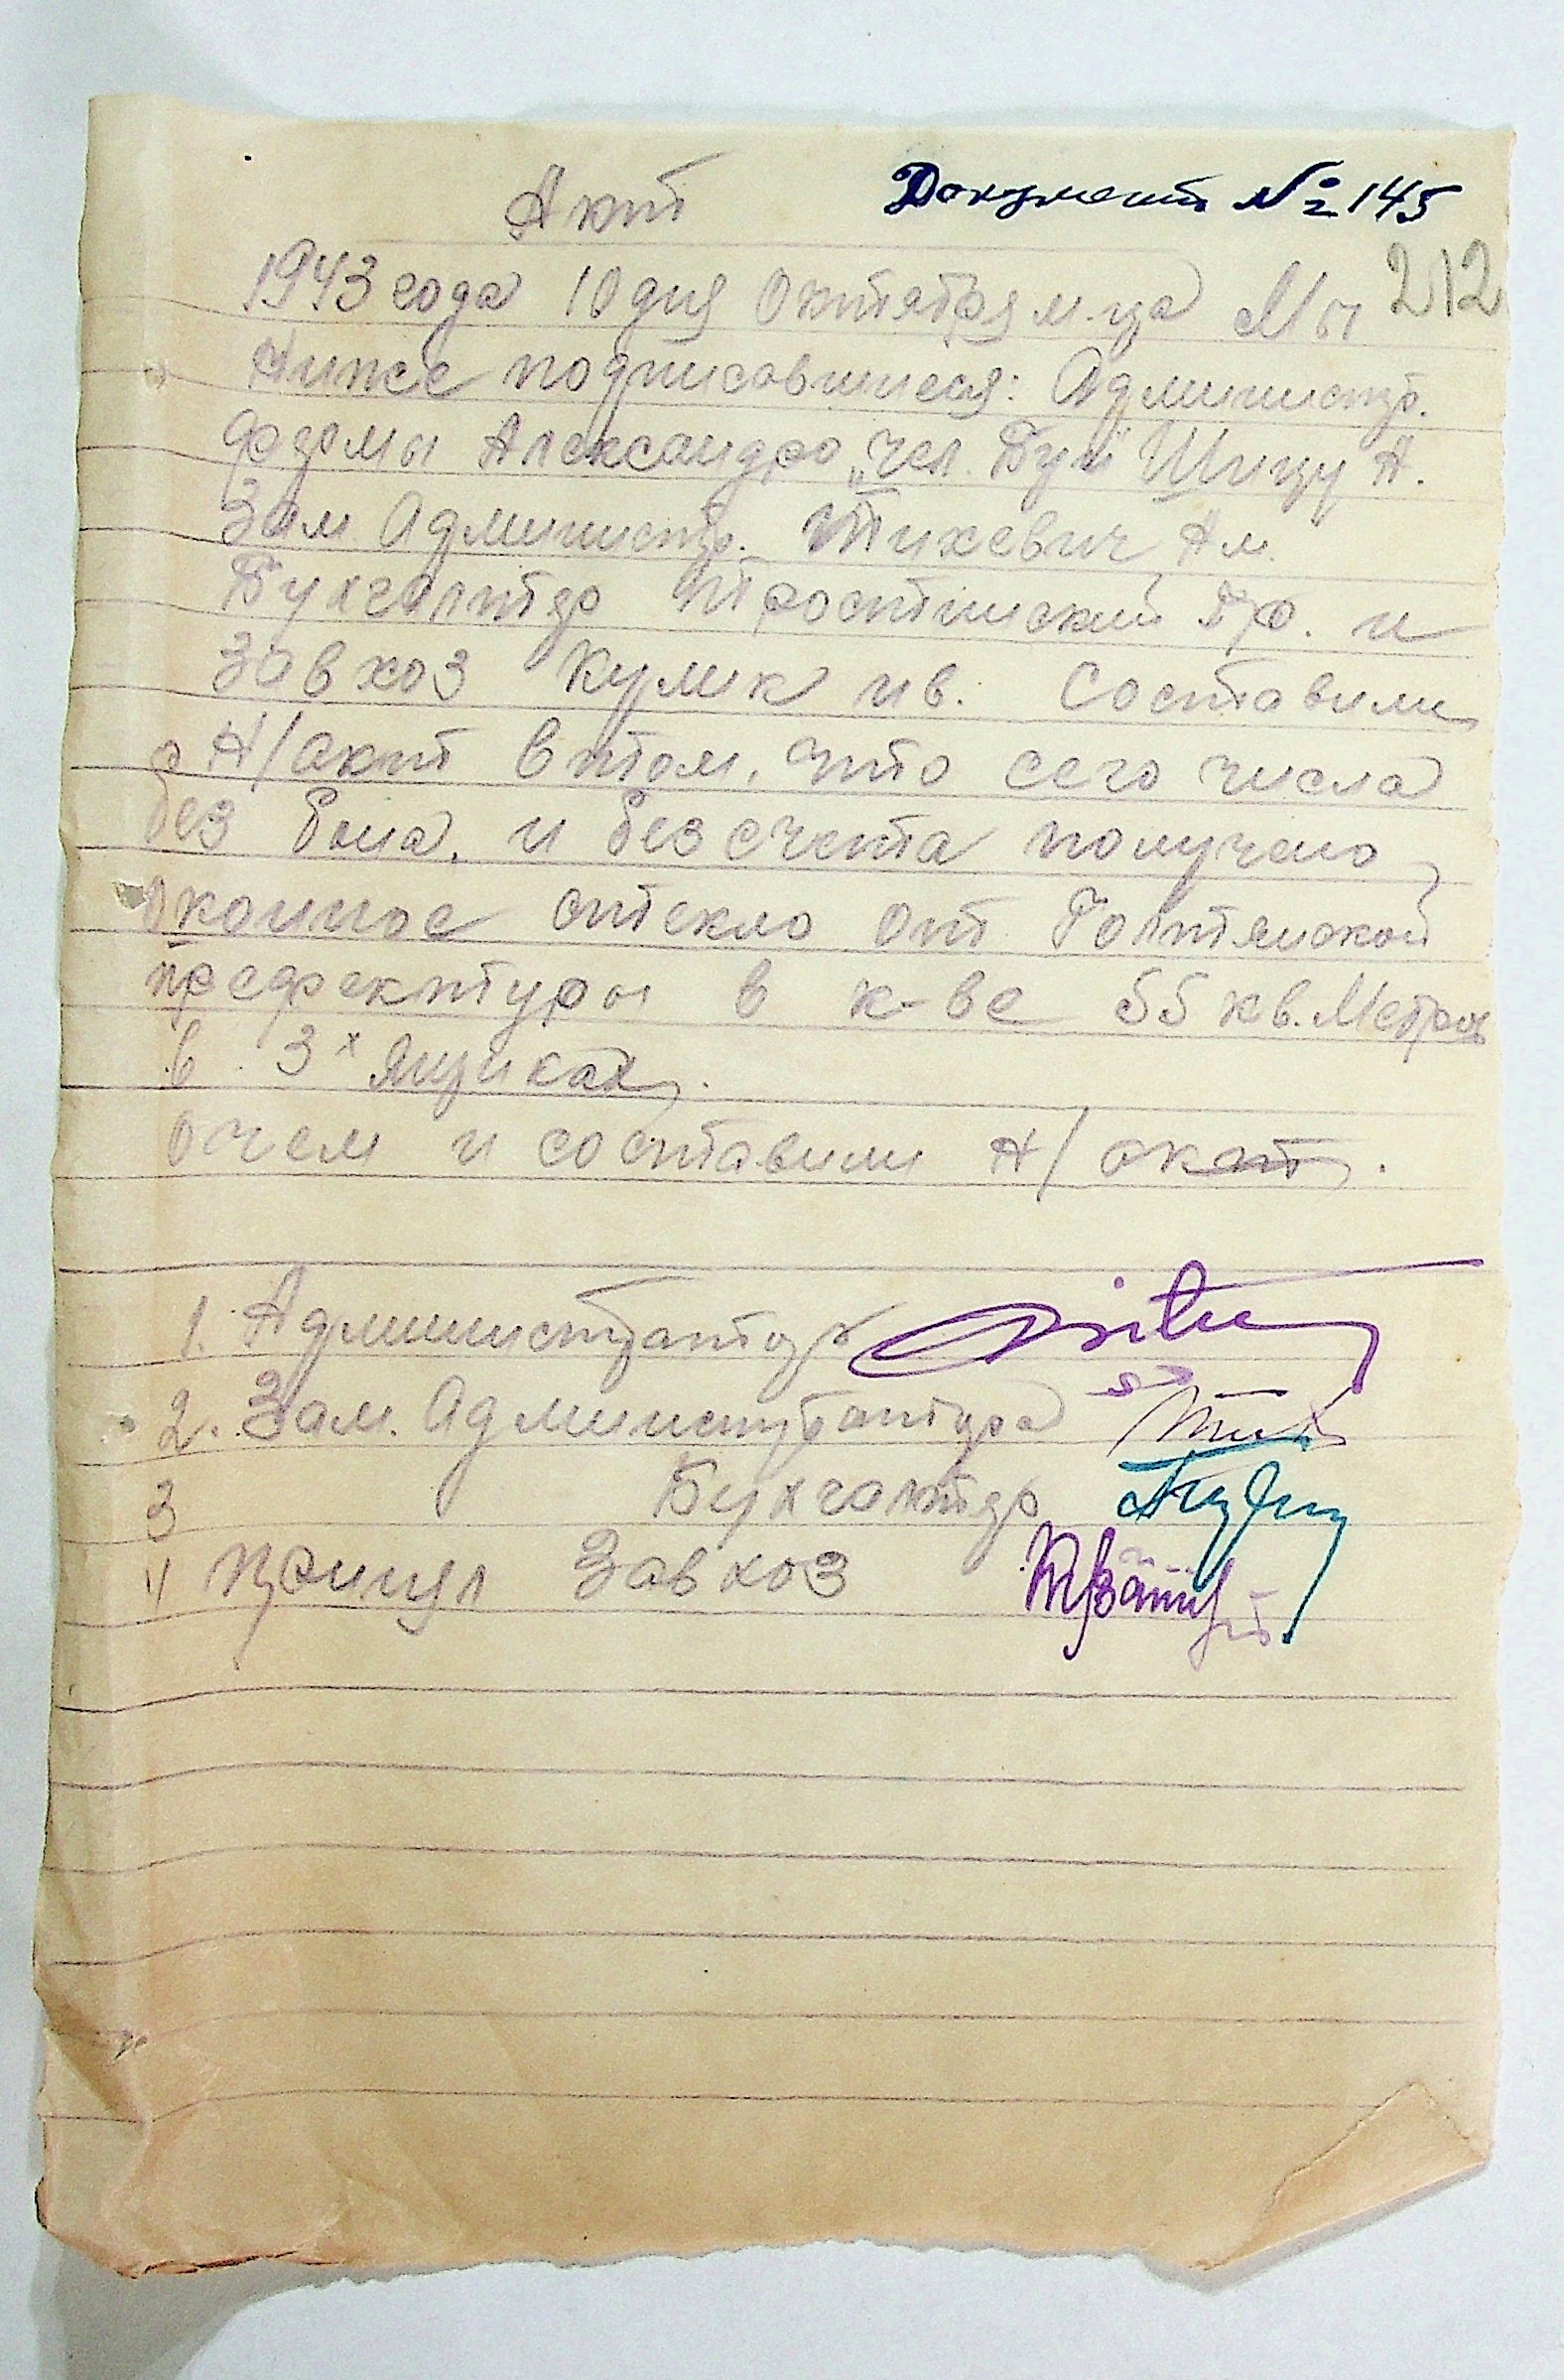 Акт Документ № 145
1943 года 10 дня Октября м-ца Мы 212
Ниже подписавшиеся: Администр.
фермы Александро „Чел. Буй" Шицу А.
Зам. Администр. Тихевич Ам.
Бухгалтер Тростинский Гр. и
Завхоз Кулик ив. Составили
Н/акт в том, что сего числа
без бона, и без счета получено
Оконное стекло от Голтянской
префектуры в к-ве 55 кв. Метров
в 3х ящиках.
О чем и составили Н/акт.
1. Администратор
2. Зам. Администратора
3 Бухгалтер
4 принял Завхоз